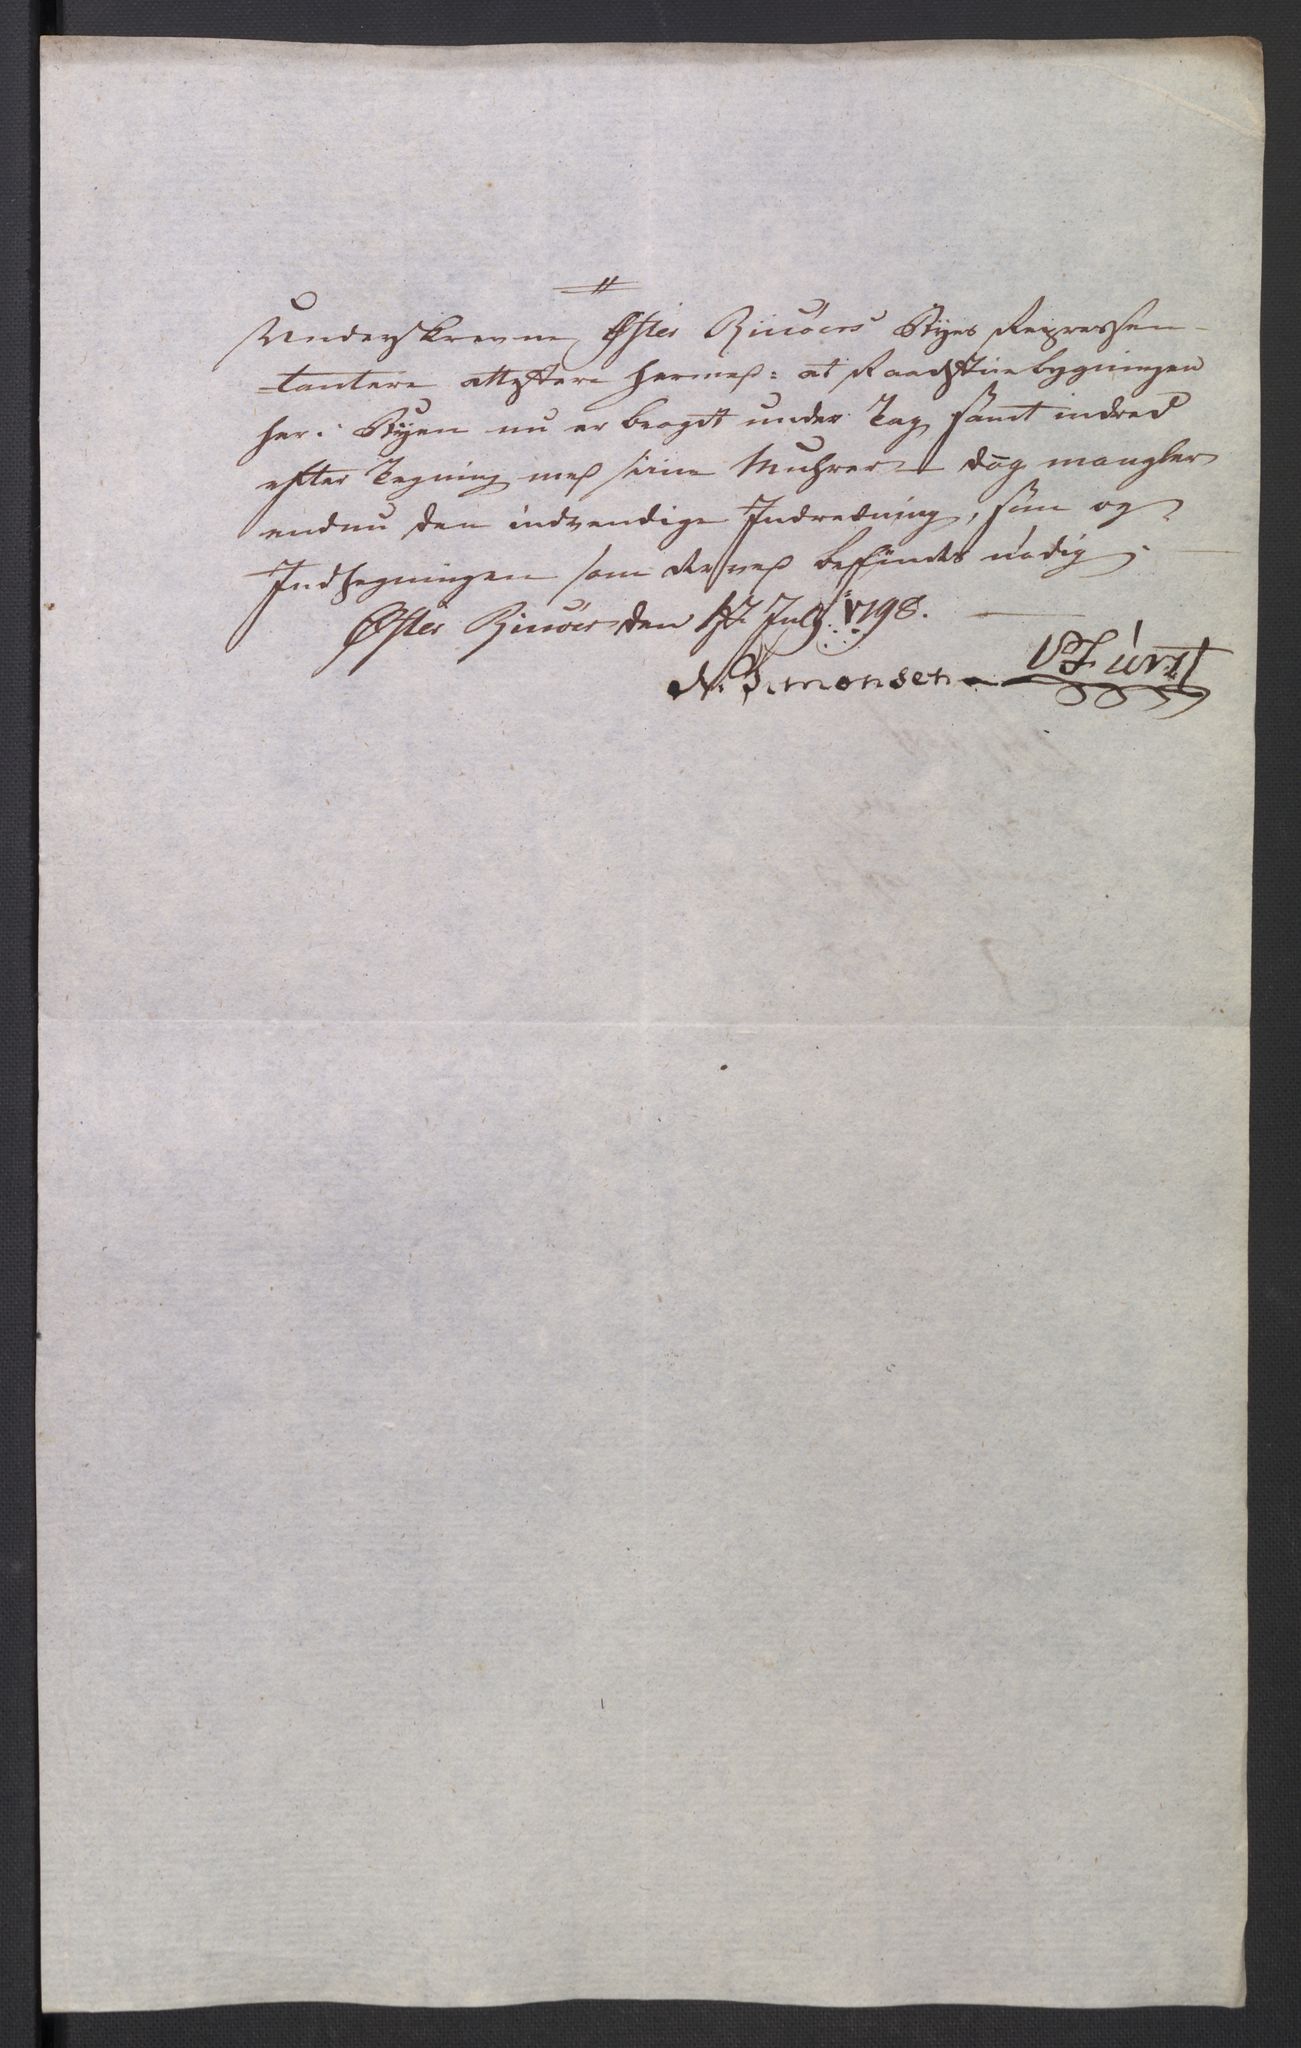 Underskrevne Øster Riisöers Byes Repressen-
tantere attestere hermed: at Raadstuebygningen
her i Byen nu er bragdt under Tag samt indred
efter Tegning med sine Muhrer – dog mangler
endnu den indvendige Indredning, saa og
Indhegningen som derved befindes nödig.
Øster Riisöer den 17de July 1798.
N. Simonsen V Fürst